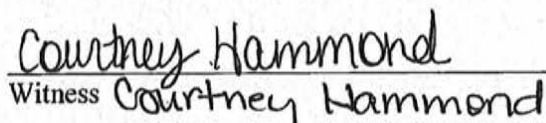 Courtney Hammond
Witness Courtney Hammond